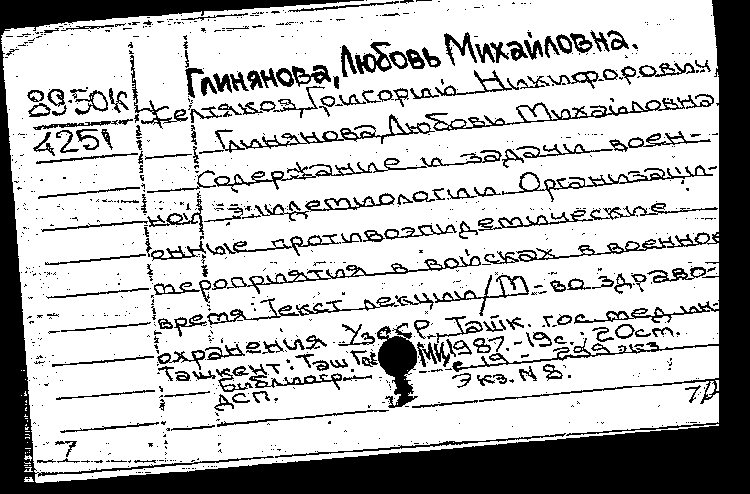 Глинянова, Любовь Михайловна.
89-50к
4251
Желтяков, Григорий Никифорович,
Глинянова, Любовь Михайловна.
Содержание и задачи воен-
ной эпидемиологии. Организаци-
онные противоэпидемические
мероприятия в войсках в военное
время: Текст лекции / М-во здраво-
охранения УзССР, Ташк. гос. мед. ин-
Ташкент: ТашГос МИ, 1987. - 19 с.; 20 см.
Библиогр. с. 19 - 299 экз.
ДСП. Экз. N 8.
7